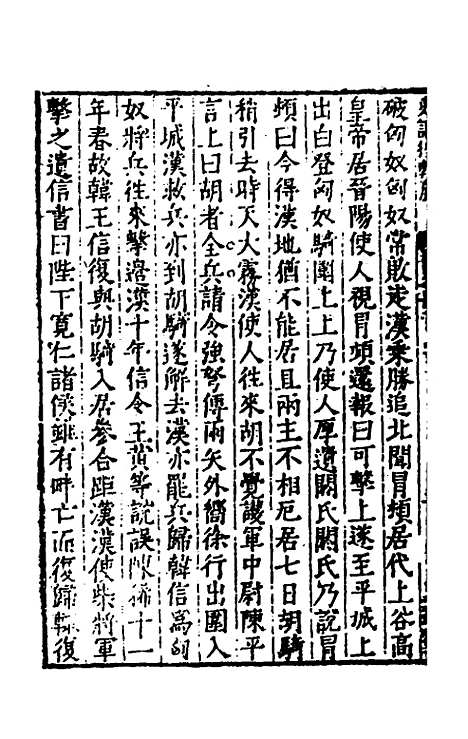 破匈奴匈奴常敗走漢乘勝追北聞冒頓居代上谷高
皇帝居晉陽使人視冒頓還報曰可擊上遂至平城上
出白登匈奴騎圍上上乃使人厚遺閼氏閼氏乃說冒
頓曰今得漢地猶不能居且兩主不相厄居七日胡騎
稍引去時天大霧漢使人往來胡不覺護軍中尉陳平
言上曰胡者全兵請令強弩傅兩矢外嚮徐行出圍入
平城漢救兵亦到胡騎遂解去漢亦罷兵歸韓信爲匈
奴將兵往來擊邊漢十年信令王黄等說誤陳豨十一
年春故韓王信復與胡騎入居參合距漢漢使柴將軍
擊之遺信書曰陛下寬仁諸侯雖有畔亡而復歸輙復